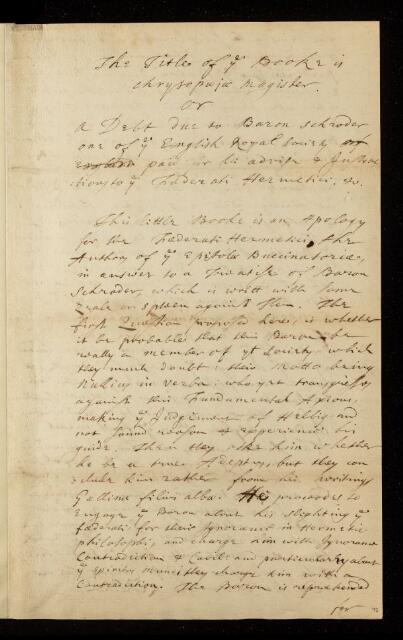 The Title of yͤ Booke is
Chrysopœiæ Magister.
or
A Debt due to Baron Schroder
one of yͤ English Royal Society
paid for his advise & Instruc
tions to yͤ Fœderati Hermetici, &c.
This little Booke is an Apology
for the Fœderati Hermetici, the
Author of yͤ Epistola Buccinatoria,
in answer to a Treatise of Baron
Schroder, which is writt with some
Zeale or spleen against them. The
first Question proposed here, is whether
it be probable that this Baron be
really a member of yt Society, which
they much doubt: their Motto being
Nullius in verba: who yet transgresses
against this Fundamental Axiom,
making yͤ Judgement of Helbig and
not sound reason & experience his
guide. Then they aske him whether
he be a true Adeptus, but they con
clude him rather from his writings
Gallinæ filius albæ. He proceedes to
Engage yͤ Baron about his slighting yͤ
fœderati for their Ignorance in Hermetic
philosophi, and charge him with Ignorance
Contradiction & Cavil: and particularly about
yͤ Spiritus Mundi they charge him with a
Contradiction. The Baron is reprehended
for